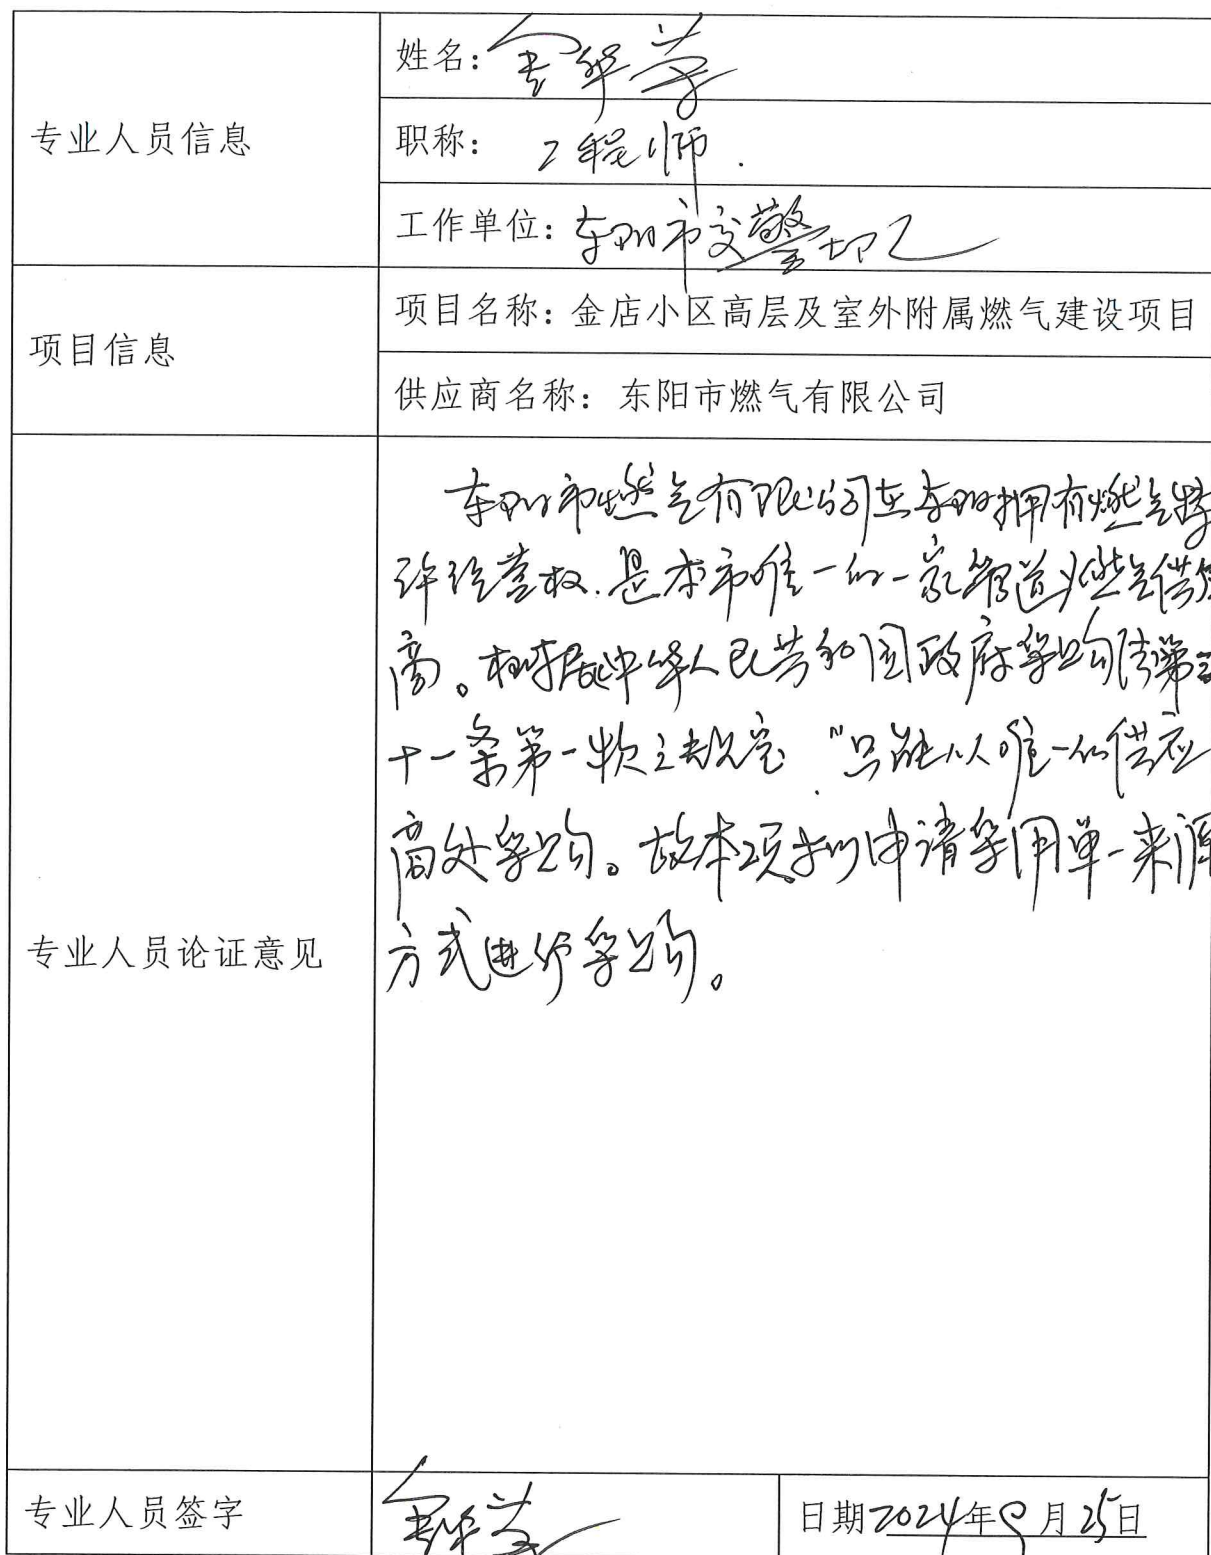 专业人员信息
姓名：金华芳
职称：工程师.
工作单位：东阳市交警
项目信息
项目名称：金店小区高层及室外附属燃气建设项目
供应商名称：东阳市燃气有限公司
专业人员论证意见
东阳市燃气有限公司在东阳拥有燃气特
许经营权.是本市唯一的一家管道燃气供应
商。根据中华人民共和国政府采购法第三
十一条第一款之规定."只能从唯一的供应
商处采购。故本项拟申请采用单一来源
方式进行采购。
专业人员签字
日期2024年9月25日